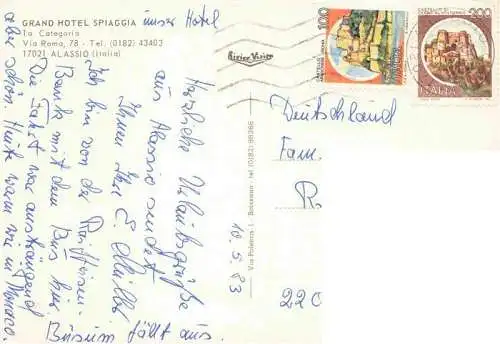 GRAND HOTEL SPIAGGIA
1a Categoria
Via Roma, 78 - Tel. (0182) 43403
17021 ALASSIO (Italia)
unser Hotel
Herzliche Urlaubsgrüße
aus Alassio sendet
Ihnen Ihr E. Müller
Ich bin von der Raiffeisen-
Bank mit dem Bus hier.
Die Fahrt war anstrengend
aber schön. Heute waren wir in Monaco.
Büsum fällt aus.
10.5.83
Via Polenza, 1 - Boissano - tel. (0182) 98266
100
300
ITALIA
Deutschland
Fam.
R
220